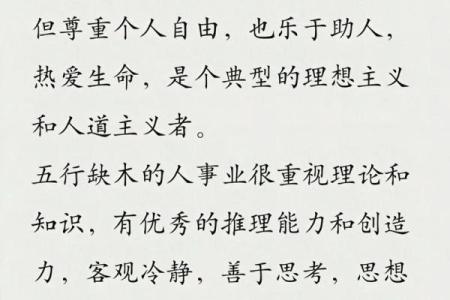 但尊重个人自由，也乐于助人，
热爱生命，是个典型的理想主义
和人道主义者。
五行缺木的人事业很重视理论和
知识，有优秀的推理能力和创造
力，客观冷静，善于思考，思想